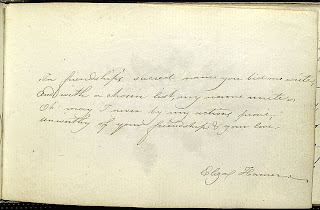 In friendship's sacred name you bid me write,
And with a chosen list, my name unite,
Oh may I never by my actions prove,
Unworthy of your friendship & your love
Eliza